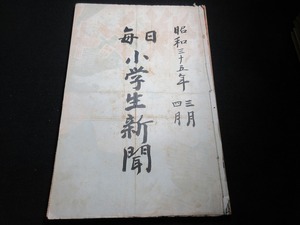 昭和三十五年
三月
四月
毎日
小学生新聞